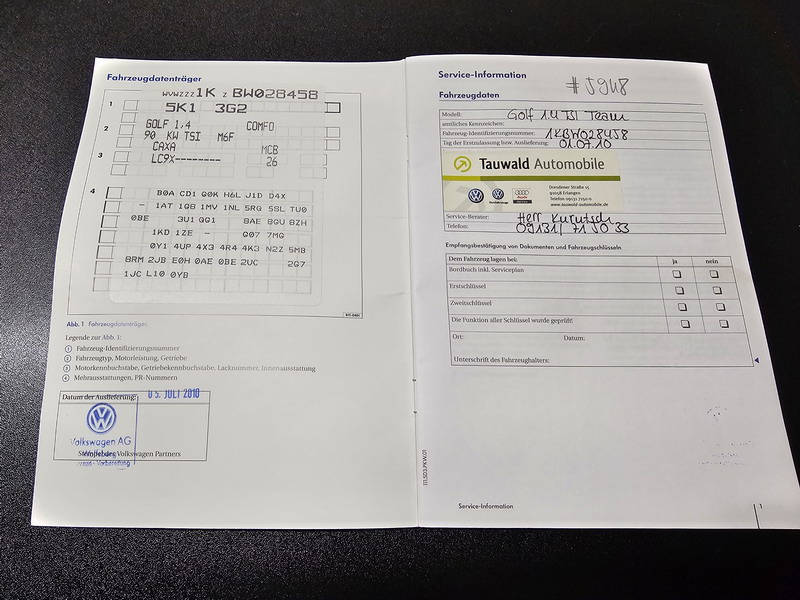 Fahrzeugdatenträger
WVWZZZ 1K Z BW028458
1 5K1 3G2
2 GOLF 1.4 COMFO
90 KW TSI M6F
3 CAXA MCB
LC9X-------- 26
4 B0A CD1 G0K H6L J1D D4X
- 1AT 1QB 1MV 1NL 5RG 5SL TU0
0BE 3U1 QG1 8AE 8GU 8ZH
1KD 1ZE - Q07 7MG
0Y1 4UP 4X3 4R4 4K3 N2Z 5MB
8RM 2JB E0H 0AE 0BE 2UC 2G7
1JC L10 0YB
Abb. 1 Fahrzeugdatenträger
Legende zur Abb. 1:
1 Fahrzeug-Identifizierungsnummer
2 Fahrzeugtyp, Motorleistung, Getriebe
3 Motorkennbuchstabe, Getriebekennbuchstabe, Lacknummer, Innenausstattung
4 Mehrausstattungen, PR-Nummern
Datum der Auslieferung: 05. JULI 2010
Volkswagen AG
Stempel des Volkswagen Partners
Service-Information
#5948
Fahrzeugdaten
Modell: Golf 1.4 TSI Team
amtliches Kennzeichen:
Fahrzeug-Identifizierungsnummer: 1KBW028458
Tag der Erstzulassung bzw. Auslieferung: 01.07.10
Tauwald Automobile
Dresdener Straße 15
91058 Erlangen
Telefon 09131 7150-0
www.tauwald-automobile.de
Service-Berater: Herr
Telefon: 09131/ 71 50 33
Empfangsbestätigung von Dokumenten und Fahrzeugschlüsseln
Dem Fahrzeug lagen bei: ja nein
Bordbuch inkl. Serviceplan
Erstschlüssel
Zweitschlüssel
Die Funktion aller Schlüssel wurde geprüft!
Ort: Datum:
Unterschrift des Fahrzeughalters:
Service-Information 1